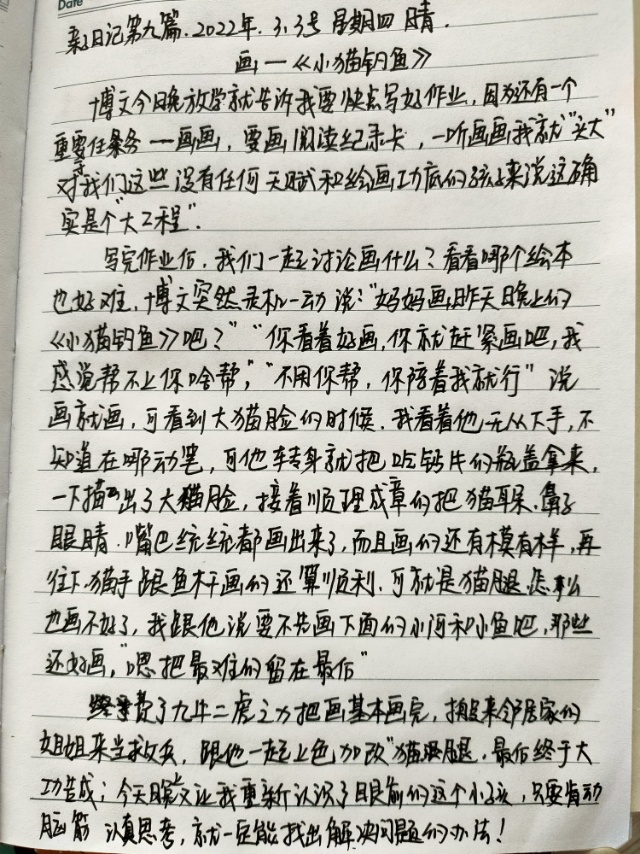 Date
亲子日记第九篇.2022年.3.3号 星期四 晴.
画一《小猫钓鱼》
博文今日晚放学就告诉我要快点写好作业,因为还有一个
重要任务一画画,要画阅读纪录卡,一听画画我就"头大"
对于我们这些没有任何天赋和绘画功底的孩子来说这确
实是个"大工程".
写完作业后.我们一起讨论画什么?看看哪个绘本
也好难,博文突然灵机一动说:"妈妈画昨天晚上的
《小猫钓鱼》吧?""你看着好画,你就赶紧画吧,我
感觉帮不上你啥帮","不用你帮,你陪着我就行"说
画就画,可看到大猫脸的时候.我看着他无从下手,不
知道在哪动笔,可他转身就把吃钙片的瓶盖拿来,
一下描出了大猫脸,接着顺理成章的把猫耳朵.鼻子
眼睛.嘴巴统统都画出来了,而且画的还有模有样,再
往下.猫手跟鱼杆画的还算顺利.可就是猫腿怎么
也画不好了,我跟他说要不先画下面的小河和小鱼吧,那些
还好画,"嗯把最难的留在最后"
终于费了九牛二虎之力把画基本画完,搬来邻居家的
姐姐来当救兵,跟他一起上色加改"猫腿,最后终于大
功告成;今天晚文让我重新认识了眼前的这个小孩,只要肯动
脑筋 认真思考,就一定能找出解决问题的办法!